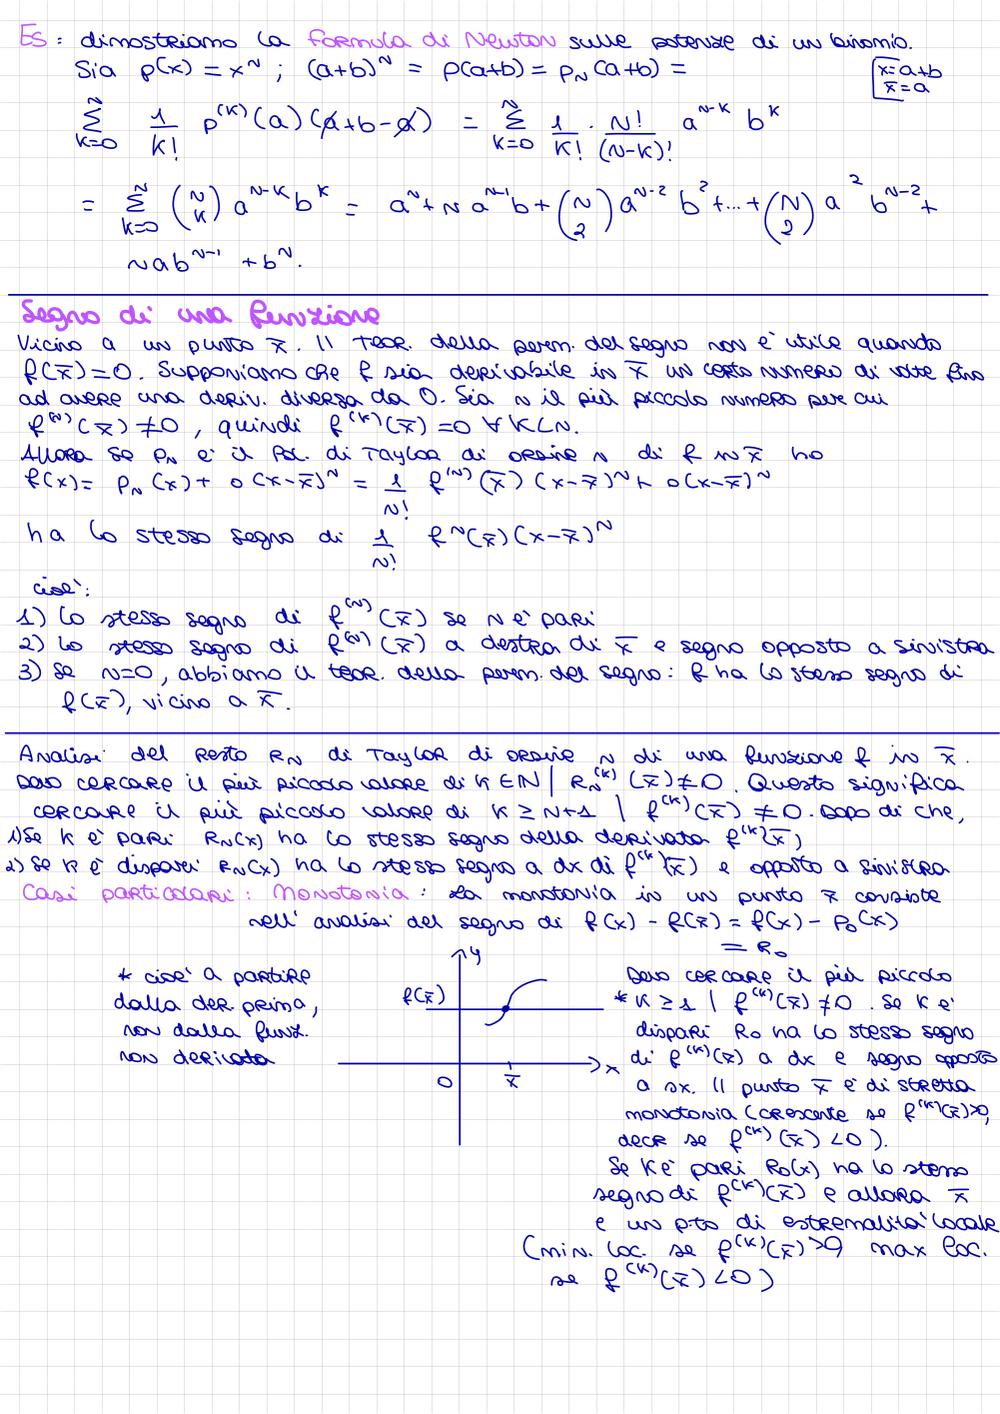 Es: dimostriamo la formula di Newton sulle potenze di un binomio.
Sia p(x) = x^N ; (a+b)^N = p(a+b) = p_N(a+b) =
x=a+b
x̄=a
∑_{k=0}^{N} 1/k! p^(k)(a)(a+b-a) = ∑_{k=0}^{N} 1/k! · N!/(N-k)! a^{N-k} b^k
= ∑_{k=0}^{N} (N k) a^{N-k} b^k = a^N + N a^{N-1} b + (N 2) a^{N-2} b^2 + ... + (N 2) a^2 b^{N-2} +
N a b^{N-1} + b^N.
Segno di una funzione
Vicino a un punto x̄. Il teor. della perm. del segno non è utile quando
f(x̄)=0. Supponiamo che f sia derivabile in x̄ un certo numero di volte fino
ad avere una deriv. diversa da 0. Sia N il più piccolo numero per cui
f^(N)(x̄) ≠ 0, quindi f^(k)(x̄) = 0 ∀ k<N.
Allora se P_N è il pol. di Taylor di ordine N di f in x̄ ho
f(x) = P_N(x) + o(x-x̄)^N = 1/N! f^(N)(x̄)(x-x̄)^N + o(x-x̄)^N
ha lo stesso segno di 1/N! f^N(x̄)(x-x̄)^N
cioè:
1) lo stesso segno di f^(N)(x̄) se N è pari
2) lo stesso segno di f^(N)(x̄) a destra di x̄ e segno opposto a sinistra
3) se N=0, abbiamo il teor. della perm. del segno: f ha lo stesso segno di
f(x̄), vicino a x̄.
Analisi del resto R_N di Taylor di ordine N di una funzione f in x̄.
Devo cercare il più piccolo valore di k ∈ ℕ | R_N^(k)(x̄) ≠ 0. Questo significa
cercare il più piccolo valore di k ≥ N+1 | f^(k)(x̄) ≠ 0. Dopo di che,
1) Se k è pari R_N(x) ha lo stesso segno della derivata f^(k)(x̄)
2) Se k è dispari R_N(x) ha lo stesso segno a dx di f^(k)(x̄) e opposto a sinistra
Casi particolari: Monotonia: La monotonia in un punto x̄ consiste
nell'analisi del segno di f(x) - f(x̄) = f(x) - P_0(x)
= R_0
* cioè a partire
dalla der. prima,
non dalla funz.
non derivata
y
f(x̄)
x
0
x̄
Devo cercare il più piccolo
* k ≥ 1 | f^(k)(x̄) ≠ 0. Se k è
dispari R_0 ha lo stesso segno
di f^(k)(x̄) a dx e segno opposto
a sx. Il punto x̄ è di stretta
monotonia (crescente se f^(k)(x̄)>0,
decr se f^(k)(x̄) <0).
Se k è pari R_0(x) ha lo stesso
segno di f^(k)(x̄) e allora x̄
è un p.to di estremalità locale
(min. loc. se f^(k)(x̄) >0 max loc.
se f^(k)(x̄) <0)